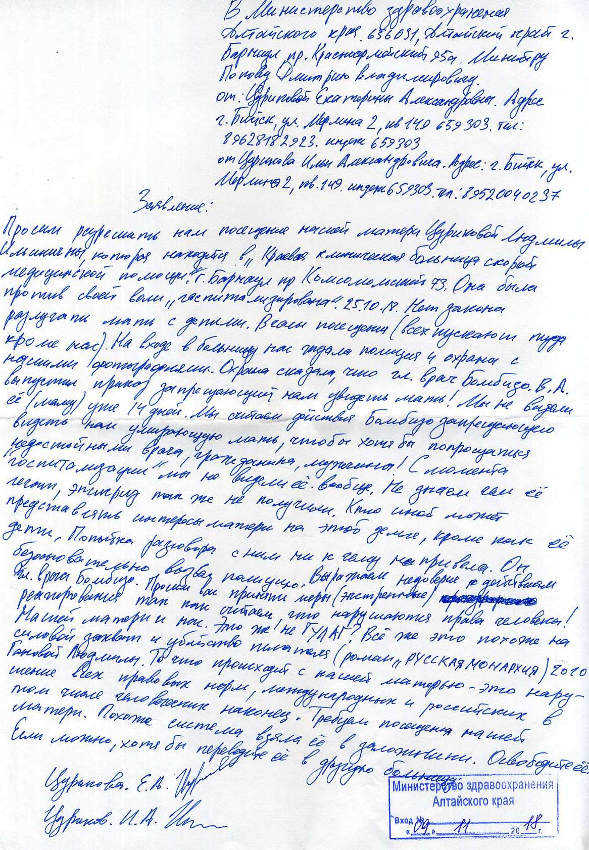 В Министерство здравоохранения
Алтайского края. 656031, Алтайский край г.
Барнаул, пр. Красноармейский 95а. Министру
Попову Дмитрию Владимировичу.
от: Цуриковой Екатерины Александровны. Адрес
г. Бийск, ул. Мерлина 2, кв 149 659303. тел:
89628182923. индекс 659303
от Цурикова Ильи Александровича. Адрес: г. Бийск, ул.
Мерлина 2, кв. 149. индекс 659303. тел: 89520040237
Заявление:
Просим разрешить нам посещение нашей матери Цуриковой Людмилы
Ильиничны, которая находится в „Краевая клиническая больница скорой
медицинской помощи." г. Барнаул пр Комсомольский 73. Она была
против своей воли „госпитализирована". 25.10.18. Нет закона
разлучать мать с детьми. В часы посещения (всех пускают туда
кроме нас). На входе в больницу нас ждала полиция и охрана с
нашими фотографиями. Охрана сказала, что гл. врач Бомбизо. В. А.
выпустил приказ запрещающий нам увидеть мать! Мы не видели
её (маму) уже 14 дней. Мы считаем действия Бомбизо запрещающего
видеть нам умирающую мать, чтобы хотя бы попрощаться
недостойными врача, гражданина, мужчины! С момента
„госпитализации" мы не видели её вообще. Не знаем чем её
лечат, эпикриз так же не получили. Кто иной может
представлять интересы матери на этой земле, кроме как её
дети, Попытка разговора с ним ни к чему не привела. Он
безосновательно вызвал полицию. Выражаем недоверие к действиям
гл. врача Бомбизо. Просим вас принять меры (экстренные)
реагирования так как считаем, что нарушаются права человека!
Нашей матери и нас. Это же не "ГУЛАГ" Всё же это похоже на
силовой захват и убийство писателя (роман „РУССКАЯ МОНАРХИЯ) 2010
Гановой Людмилы. То что происходит с нашей матерью - это нару-
шение всех правовых норм, международных и российских в
том числе человеческих наконец. Требуем посещения нашей
матери. Похоже система взяла её в заложники. Освободите её,
Если можно, хотя бы переведите её в другую больницу.
Цурикова. Е.А.
Цуриков. И. А.
Министерство здравоохранения
Алтайского края
Вход №
„09" 11 2018 г.